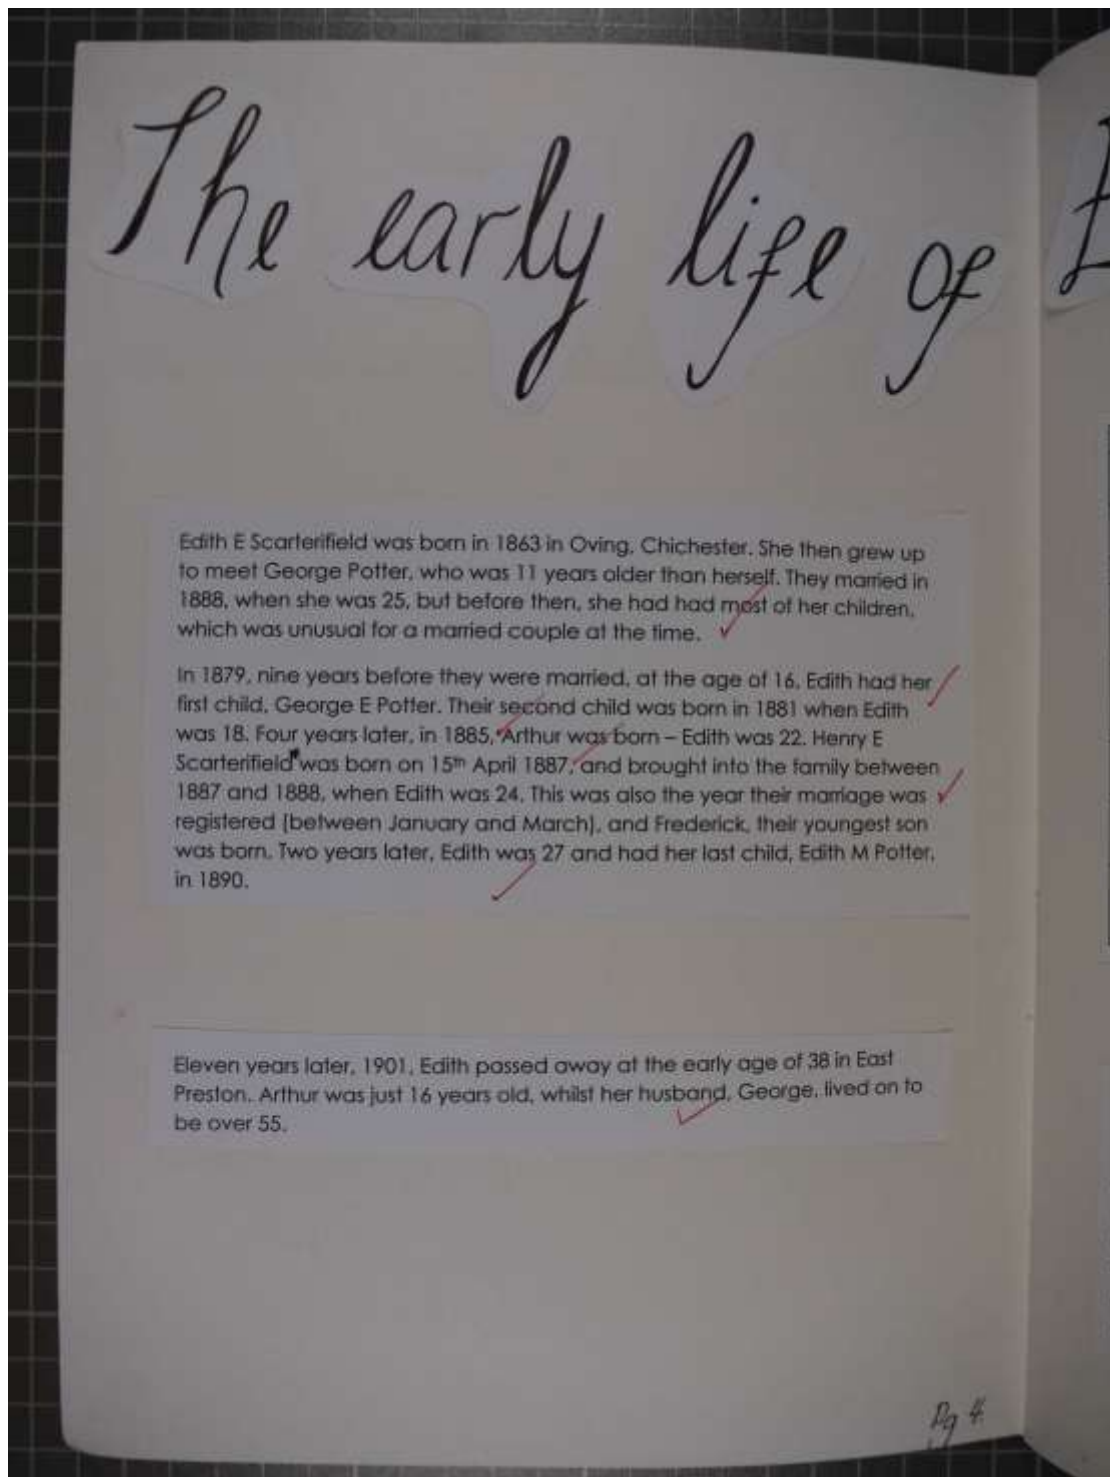 The early life of E
Edith E Scarterifield was born in 1863 in Oving, Chichester. She then grew up
to meet George Potter, who was 11 years older than herself. They married in
1888, when she was 25, but before then, she had had most of her children,
which was unusual for a married couple at the time.
In 1879, nine years before they were married, at the age of 16, Edith had her
first child, George E Potter. Their second child was born in 1881 when Edith
was 18. Four years later, in 1885, Arthur was born – Edith was 22. Henry E
Scarterifield was born on 15th April 1887, and brought into the family between
1887 and 1888, when Edith was 24. This was also the year their marriage was
registered (between January and March), and Frederick, their youngest son
was born. Two years later, Edith was 27 and had her last child, Edith M Potter,
in 1890.
Eleven years later, 1901, Edith passed away at the early age of 38 in East
Preston. Arthur was just 16 years old, whilst her husband, George, lived on to
be over 55.
Pg 4.